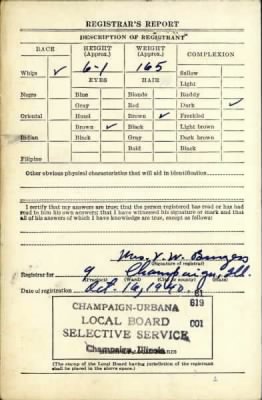 REGISTRAR'S REPORT
DESCRIPTION OF REGISTRANT
RACE HEIGHT (Approx.) WEIGHT (Approx.) COMPLEXION
White ✓ 6-1 165 Sallow
EYES HAIR Light
Negro Blue Blonde Ruddy
Gray Red Dark ✓
Oriental Hazel Brown ✓ Freckled
Brown ✓ Black Light brown
Indian Black Gray Dark brown
Bald Black
Filipino
Other obvious physical characteristics that will aid in identification
I certify that my answers are true; that the person registered has read or has had
read to him his own answers; that I have witnessed his signature or mark and that
all of his answers of which I have knowledge are true, except as follows:
Mrs. V. W. Burgess
(Signature of registrar)
Registrar for 9 Champaign, Ill.
(Precinct) (Ward) (City or county) (State)
Date of registration Oct. 16, 1940
CHAMPAIGN-URBANA
LOCAL BOARD
SELECTIVE SERVICE
Champaign, Illinois
61
019
001
(The stamp of the Local Board having jurisdiction of the registrant
shall be placed in the above space.)